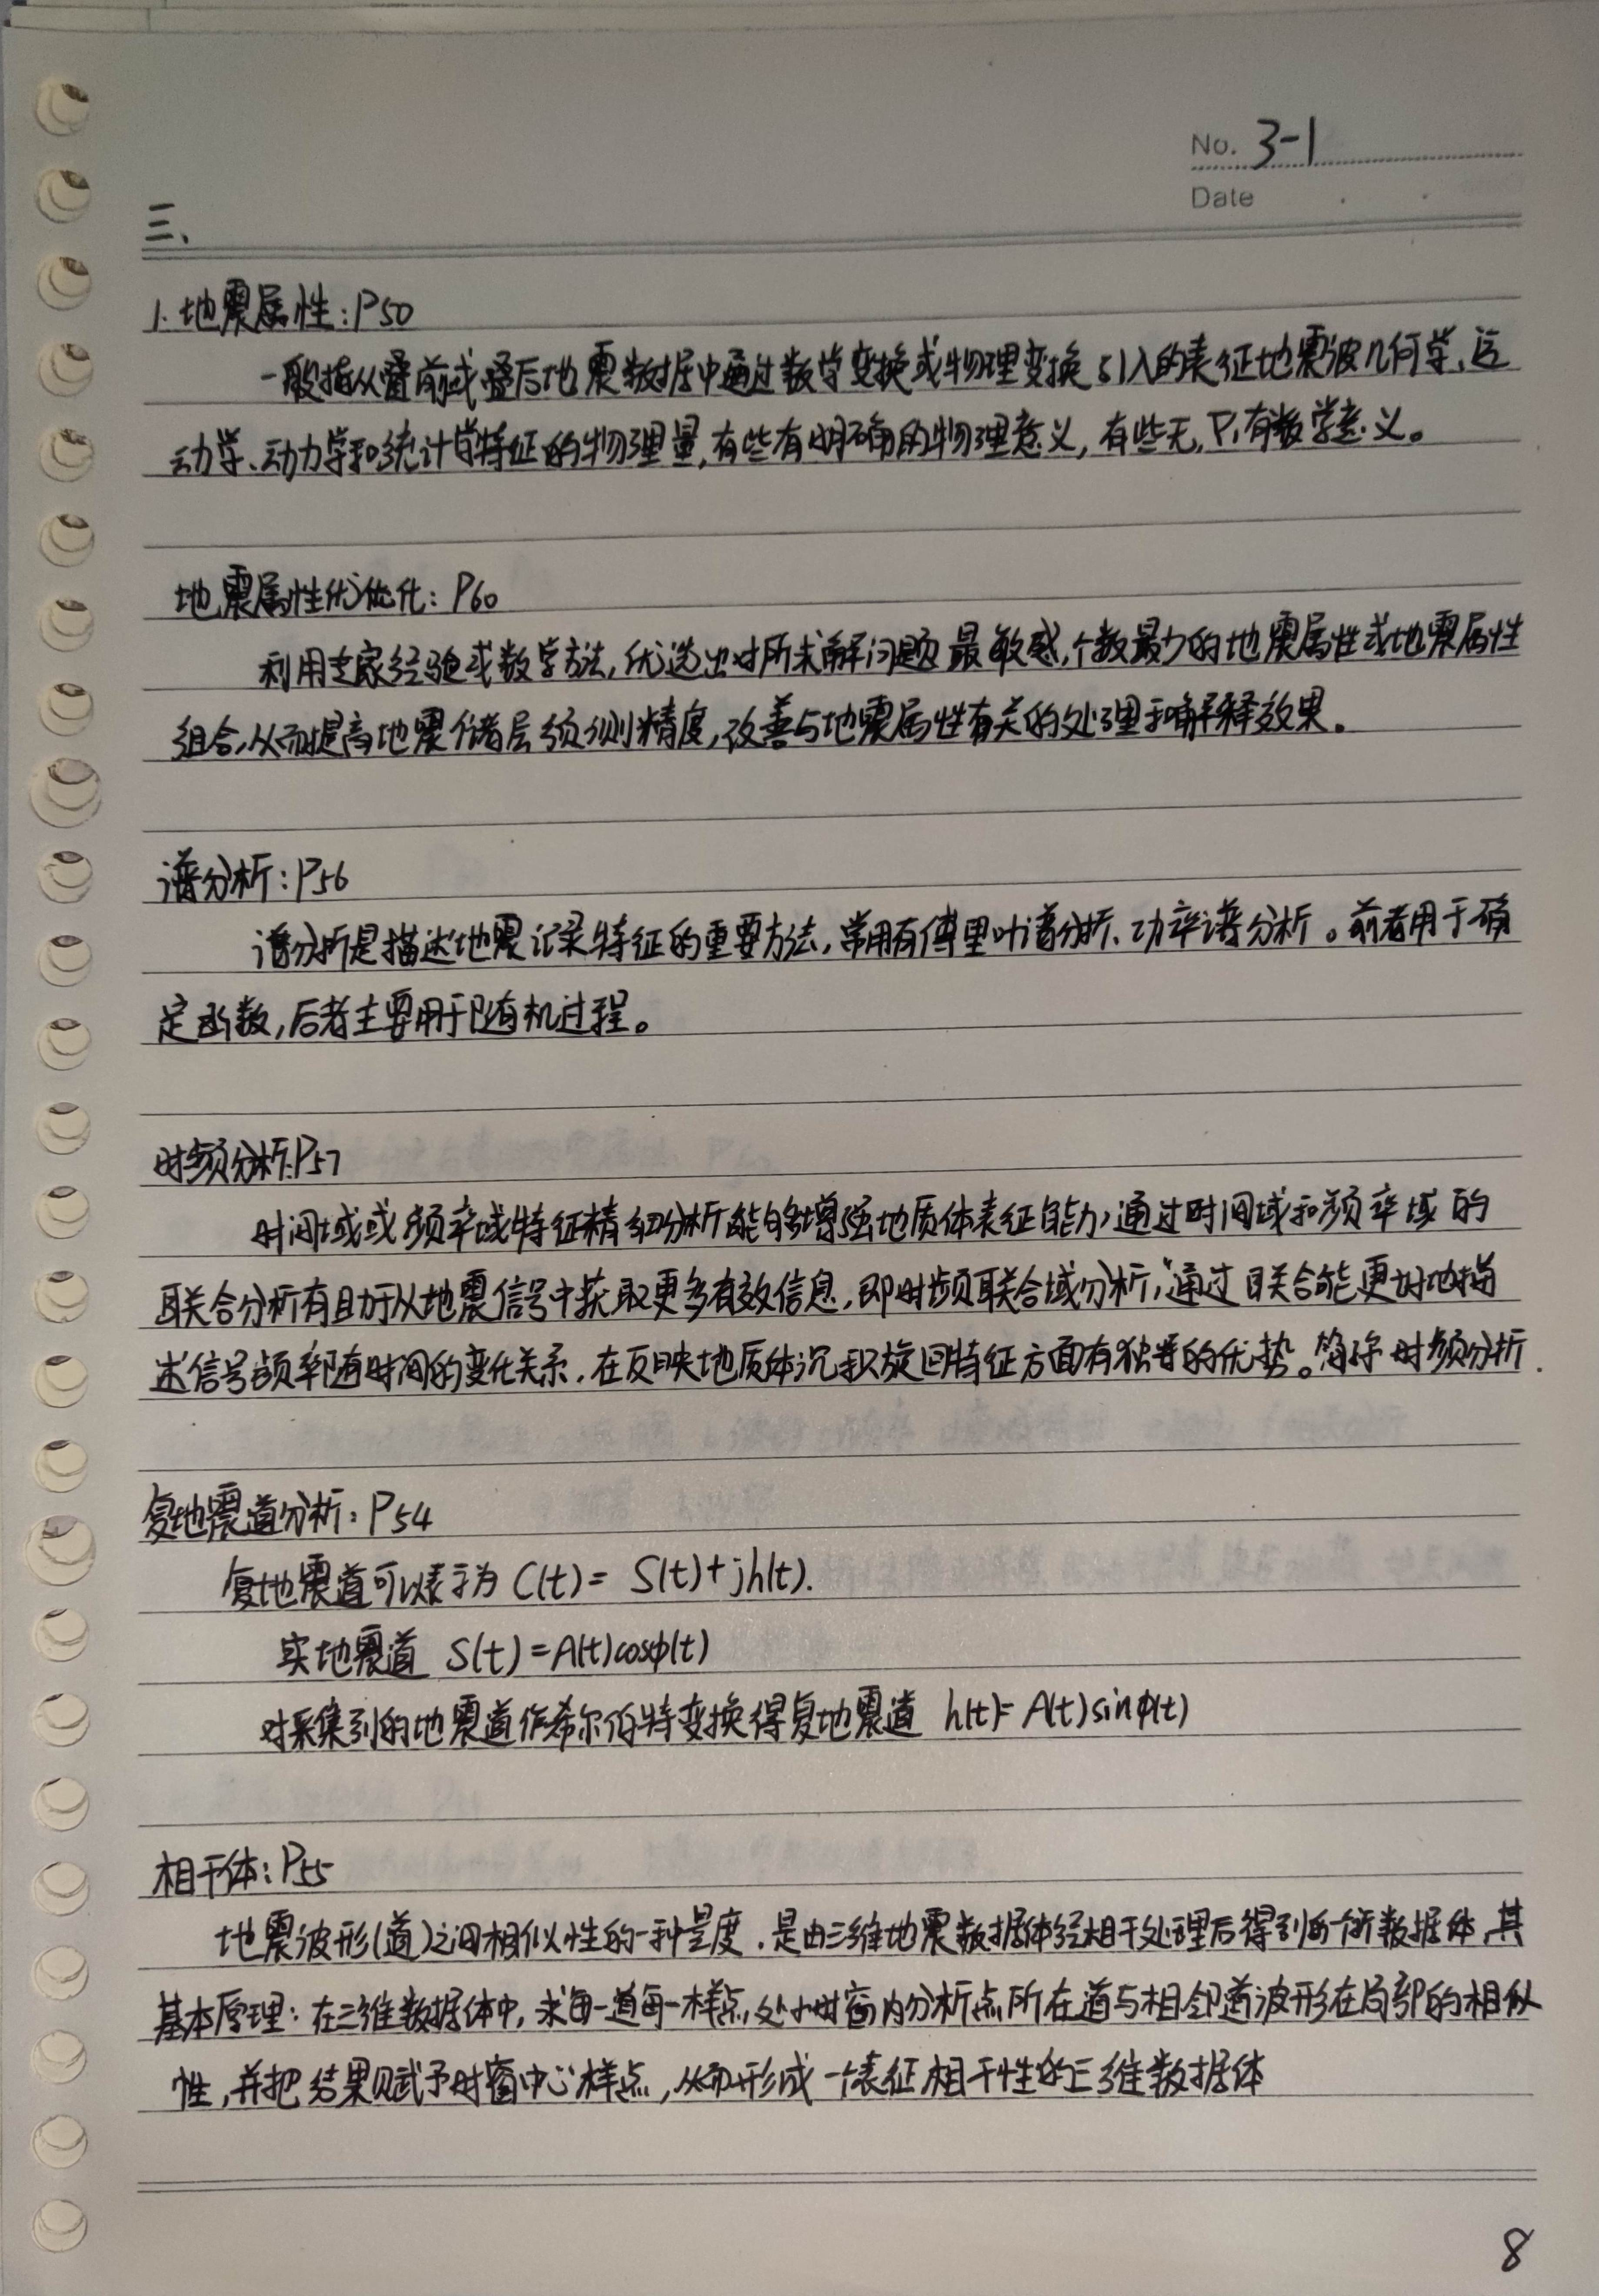 No. 3-1
Date
三、
1.地震属性:P50
一般指从叠前或叠后地震数据中通过数学变换或物理变换引入的表征地震波几何学、运
动学、动力学和统计学特征的物理量,有些有明确的物理意义,有些无,只有数学意义。
地震属性优化:P60
利用专家经验或数学方法,优选出对所求解问题最敏感,个数最少的地震属性或地震属性
组合,从而提高地震储层预测精度,改善与地震属性有关的处理和解释效果。
谱分析:P56
谱分析是描述地震记录特征的重要方法,常用有傅里叶谱分析、功率谱分析。前者用于确
定函数,后者主要用于随机过程。
时频分析:P57
时间域或频率域特征精细分析能够增强地质体表征能力,通过时间域和频率域的
联合分析有助于从地震信号中获取更多有效信息,即时频联合域分析,通过联合能更好地描
述信号频率随时间的变化关系,在反映地质体沉积旋回特征方面有独特的优势。简称时频分析.
复地震道分析:P54
复地震道可以表示为 C(t)= S(t)+jh(t).
实地震道 S(t)=A(t)cosφ(t)
对采集到的地震道作希尔伯特变换得复地震道 h(t)=A(t)sinφ(t)
相干体:P55
地震波形(道)之间相似性的一种量度.是由三维地震数据体经相干处理后得到的一个新数据体,其
基本原理:在三维数据体中,求每一道每一样点处小时窗内分析点所在道与相邻道波形在局部的相似
性,并把结果赋予时窗中心样点,从而形成一个表征相干性的三维数据体
8